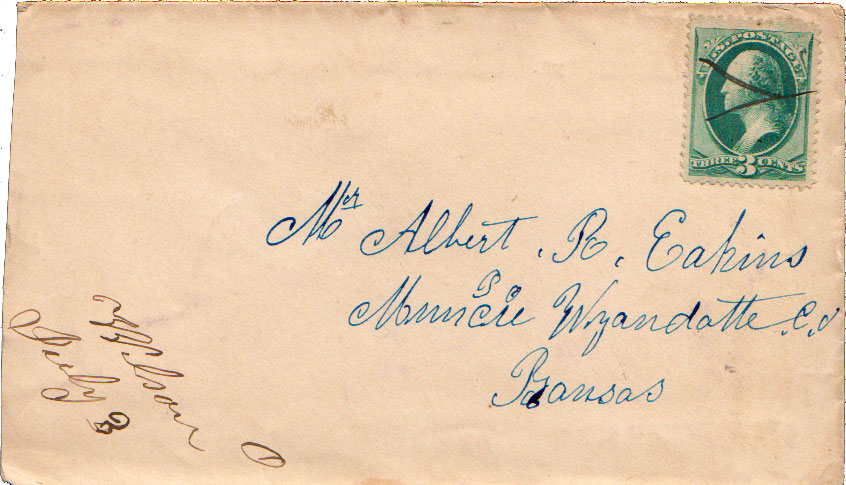 U.S. POSTAGE
THREE 3 CENTS
Mr Albert . R. Eakins
P O
Muncie Wyandotte C.o
Kansas
Wilson
July 3